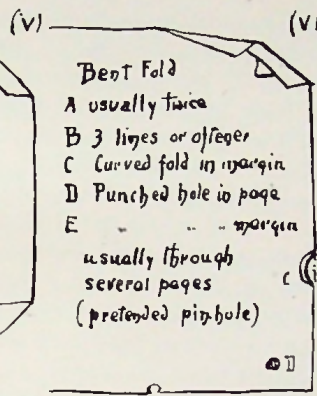 (V) (V
Bent Fold
A usually twice
B 3 lines or oftener
C Curved fold in margin
D Punched hole in page
E " " " margin
usually through
several pages
(pretended pinhole)
C
D